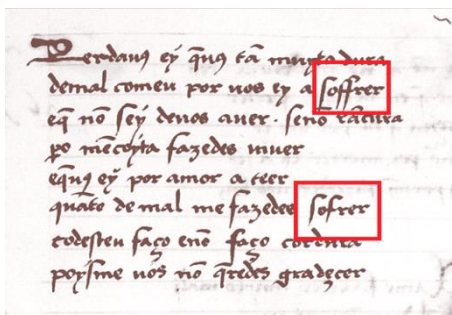 Perdanꝰ eỹ q̃nꝰ tã muyta dura
demal comeu por uos ey a soffrer
eq̃ nõ sey deuos auer . senõ rãcura
po mẽcoyta fazedes uiuer
eq̃nꝰ eỹ por amor a teer
quãto de mal me fazedes sofrer
todesteu faço enõ faço cordura
poysme uós nõ q̃redes gradeçer